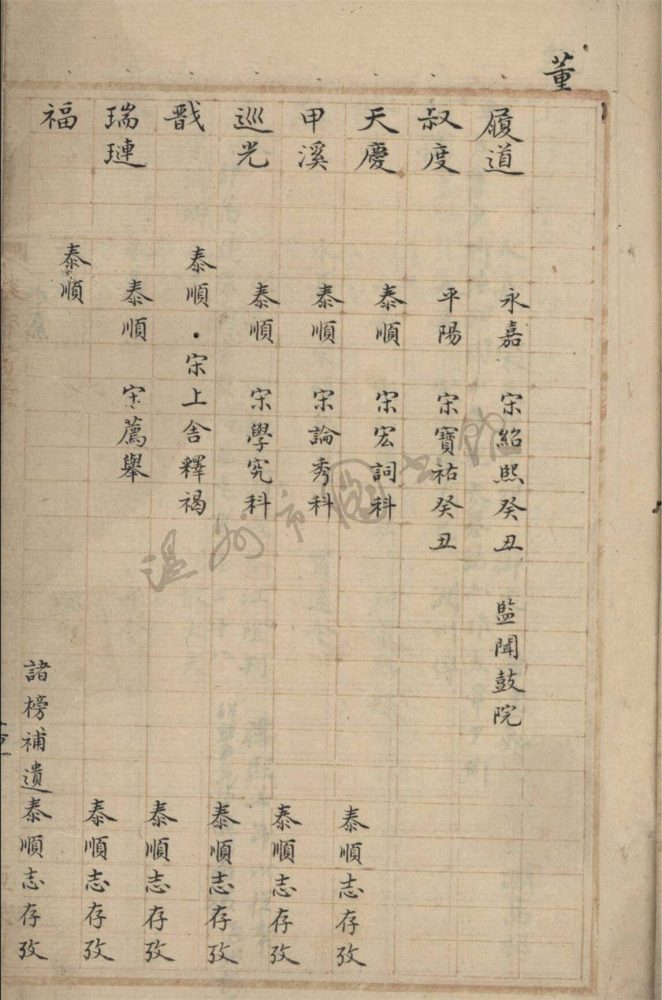 董
履道 永嘉 宋紹熙癸丑 監聞鼓院
叔度 平陽 宋寶祐癸丑
天慶 泰順 宋宏詞科 泰順志存攷
甲溪 泰順 宋論秀科 泰順志存攷
巡光 泰順 宋學究科 泰順志存攷
戩 泰順·宋上舍釋褐 泰順志存攷
瑞璉 泰順 宋薦舉 泰順志存攷
福 泰順 諸榜補遺泰順志存攷
温州市圖书館